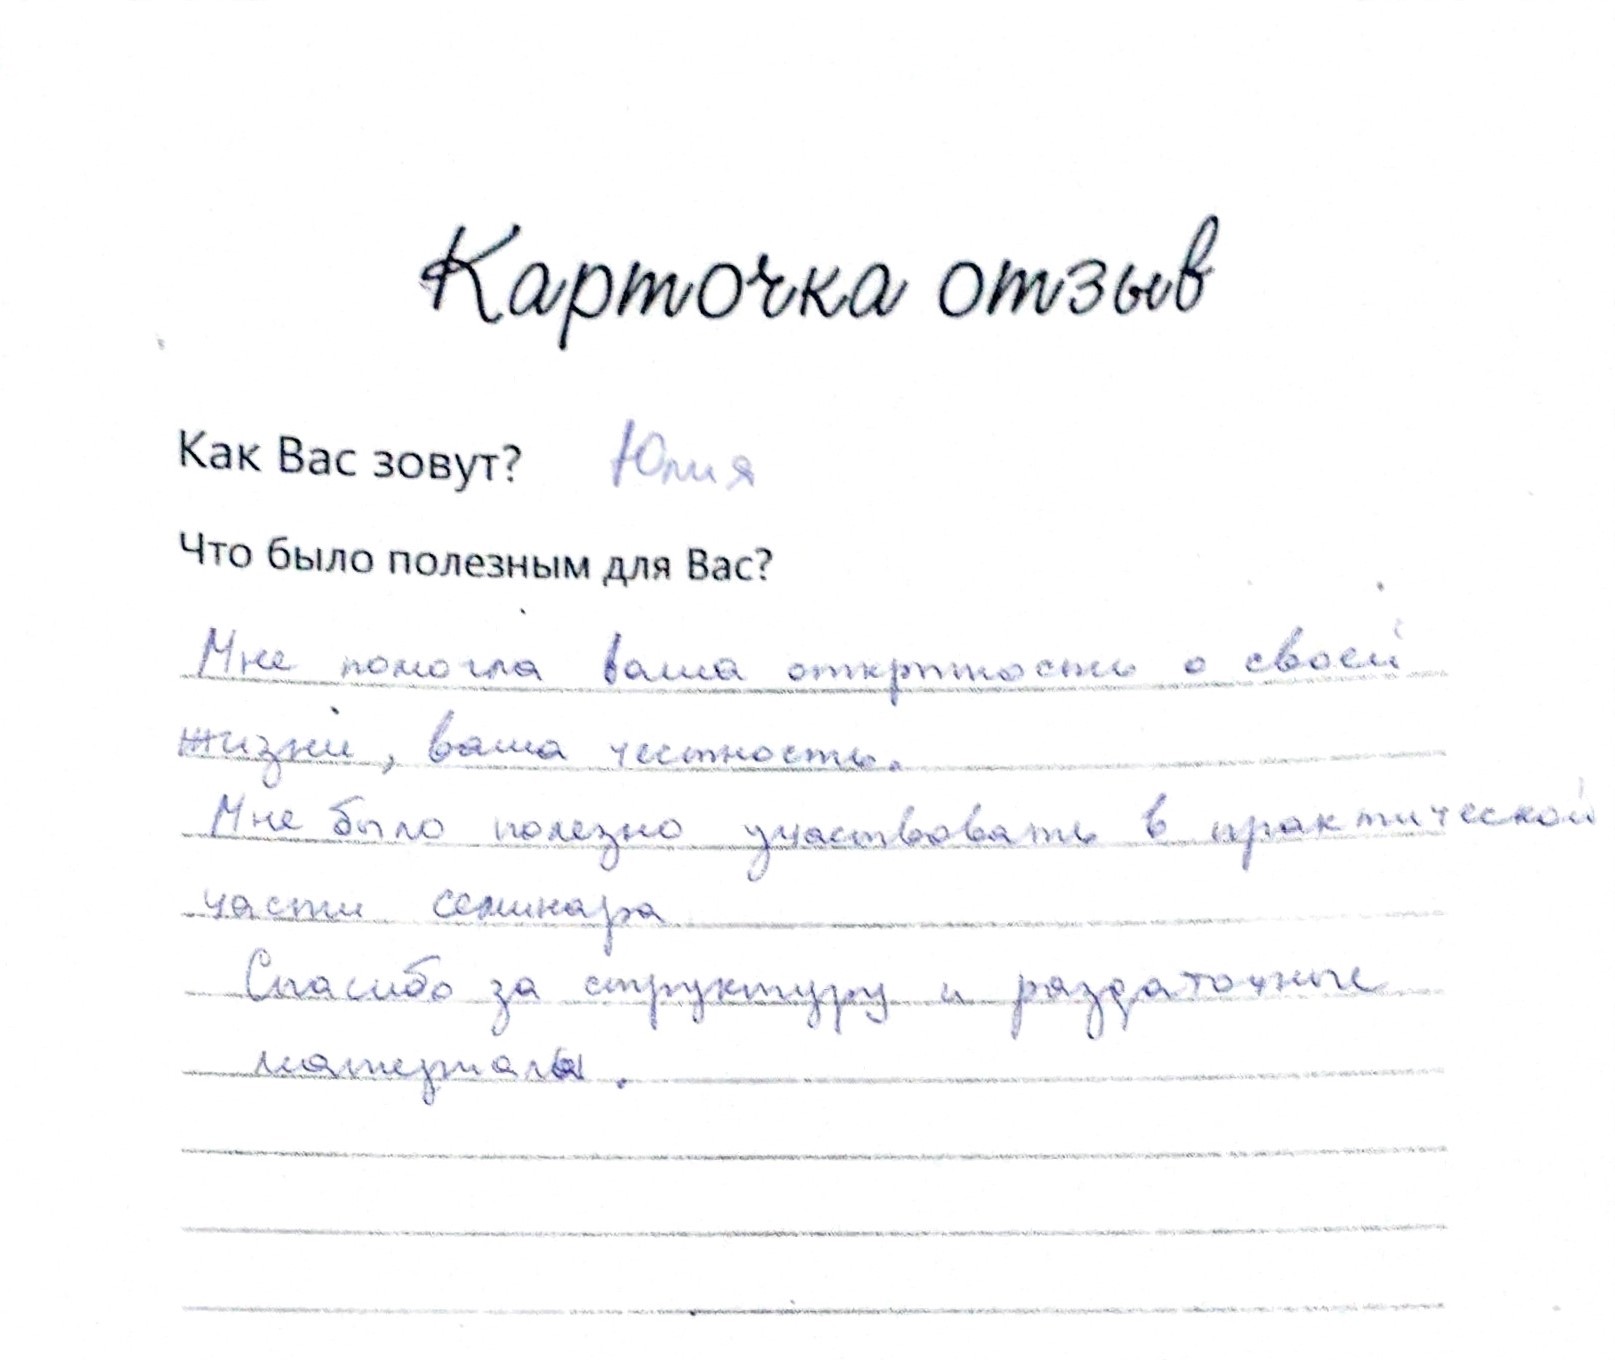 Карточка отзыв
Как Вас зовут? Юлия
Что было полезным для Вас?
Мне помогла ваша открытость о своей
жизни, ваша честность.
Мне было полезно участвовать в практической
части семинара
Спасибо за структуру и раздаточные
материалы.